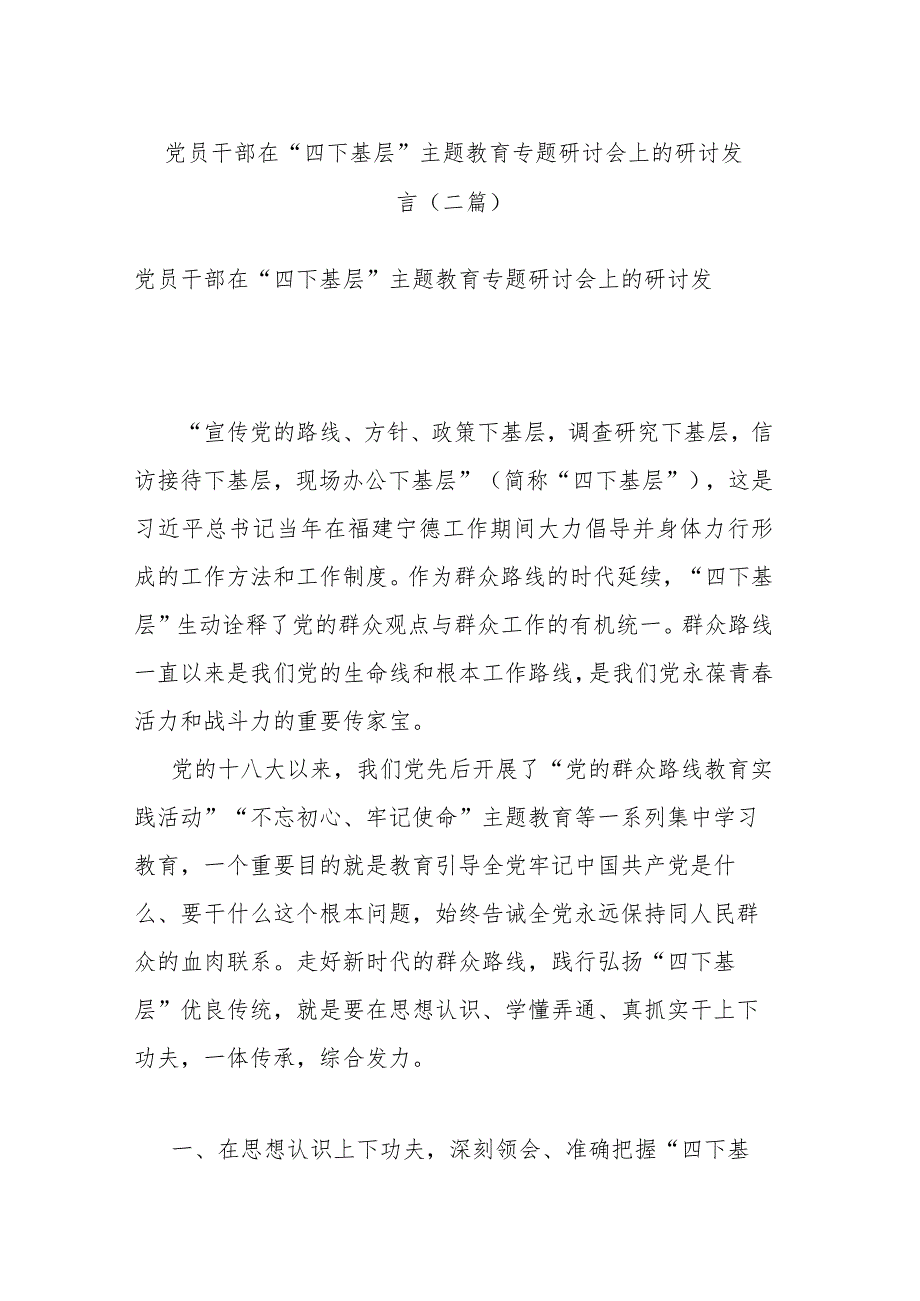 党员干部在“四下基层”主题教育专题研讨会上的研讨发
言（二篇）
党员干部在“四下基层”主题教育专题研讨会上的研讨发
“宣传党的路线、方针、政策下基层，调查研究下基层，信
访接待下基层，现场办公下基层”（简称“四下基层”），这是
习近平总书记当年在福建宁德工作期间大力倡导并身体力行形
成的工作方法和工作制度。作为群众路线的时代延续，“四下基
层”生动诠释了党的群众观点与群众工作的有机统一。群众路线
一直以来是我们党的生命线和根本工作路线，是我们党永葆青春
活力和战斗力的重要传家宝。
党的十八大以来，我们党先后开展了“党的群众路线教育实
践活动”“不忘初心、牢记使命”主题教育等一系列集中学习
教育，一个重要目的就是教育引导全党牢记中国共产党是什
么、要干什么这个根本问题，始终告诫全党永远保持同人民群
众的血肉联系。走好新时代的群众路线，践行弘扬“四下基
层”优良传统，就是要在思想认识、学懂弄通、真抓实干上下
功夫，一体传承，综合发力。
一、在思想认识上下功夫，深刻领会、准确把握“四下基